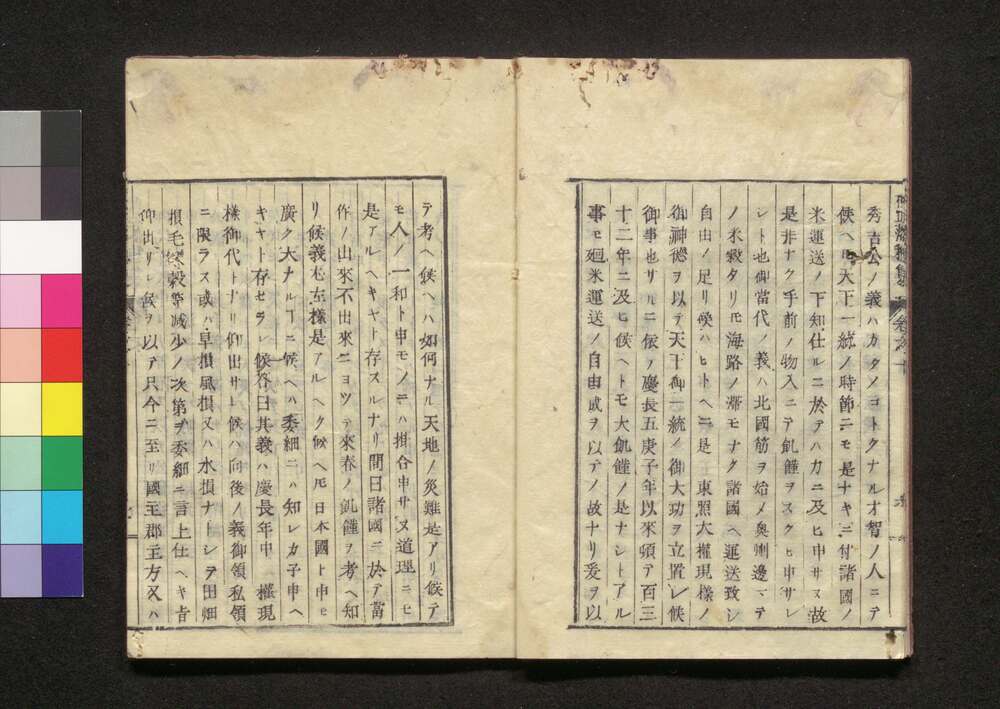 秀吉公ノ義ハカタメコトクナルオ智ノ人ニテ
候ヘ𪜈大王一統ノ時節ニモ是ナキニ付諸國ノ
米運送ノ下知仕ルニ於テハカニ及ヒ申サス故
是非ナク手前ノ物入ニテ飢饉ヲスクヒ申サレ
シト也御當代ノ義ハ北國筋ヲ始メ奥州邊マテ
ノ米穀タリ𪜈海路ノ滞モナク諸國ヘ運送致シ
自由ノ足リ候ハヒトヘニ是 東照大權現様ノ
御神德ヲ以テ天下御一統ノ御大功ヲ立置レ候
御事也サルニ依ノ慶長五庚子年以來頃テ百三
十二年ニ及ヒ候ヘトモ大飢饉ノ是ナシトアル
事モ廻米運送ノ自由或ヲ以テノ故ナリ爰ヲ以
テ考ヘ候ヘハ如何ナル天地ノ災難是アリ候テ
モ人ノ一和ト申モノニハ推合申サヌ道理ニヒ
是アルヘキヤト存スルナリ間日諸國ニ於テ當
作ノ出來不出來ニヨツテ來春ノ飢饉ヲ考ヘ知
リ候義モ左様是アルヘク候ヘ𪜈日本國ト申ヒ
廣ク大ナルヿニ候ヘハ委細ニハ知レカ子申ヘ
キヤト存セラレ候答曰其義ハ慶長年中 權現
様御代トナリ仰出サレ候ハ向後ノ義御領私領
ニ限ラス或ハ旱損風損又ハ水損ナトシテ田畑
損毛米穀等減少ノ次第ヲ委細ニ言上仕ヘキ旨
仰出サレ候ヲ以テ只今ニ至リ國主郡主方又ハ